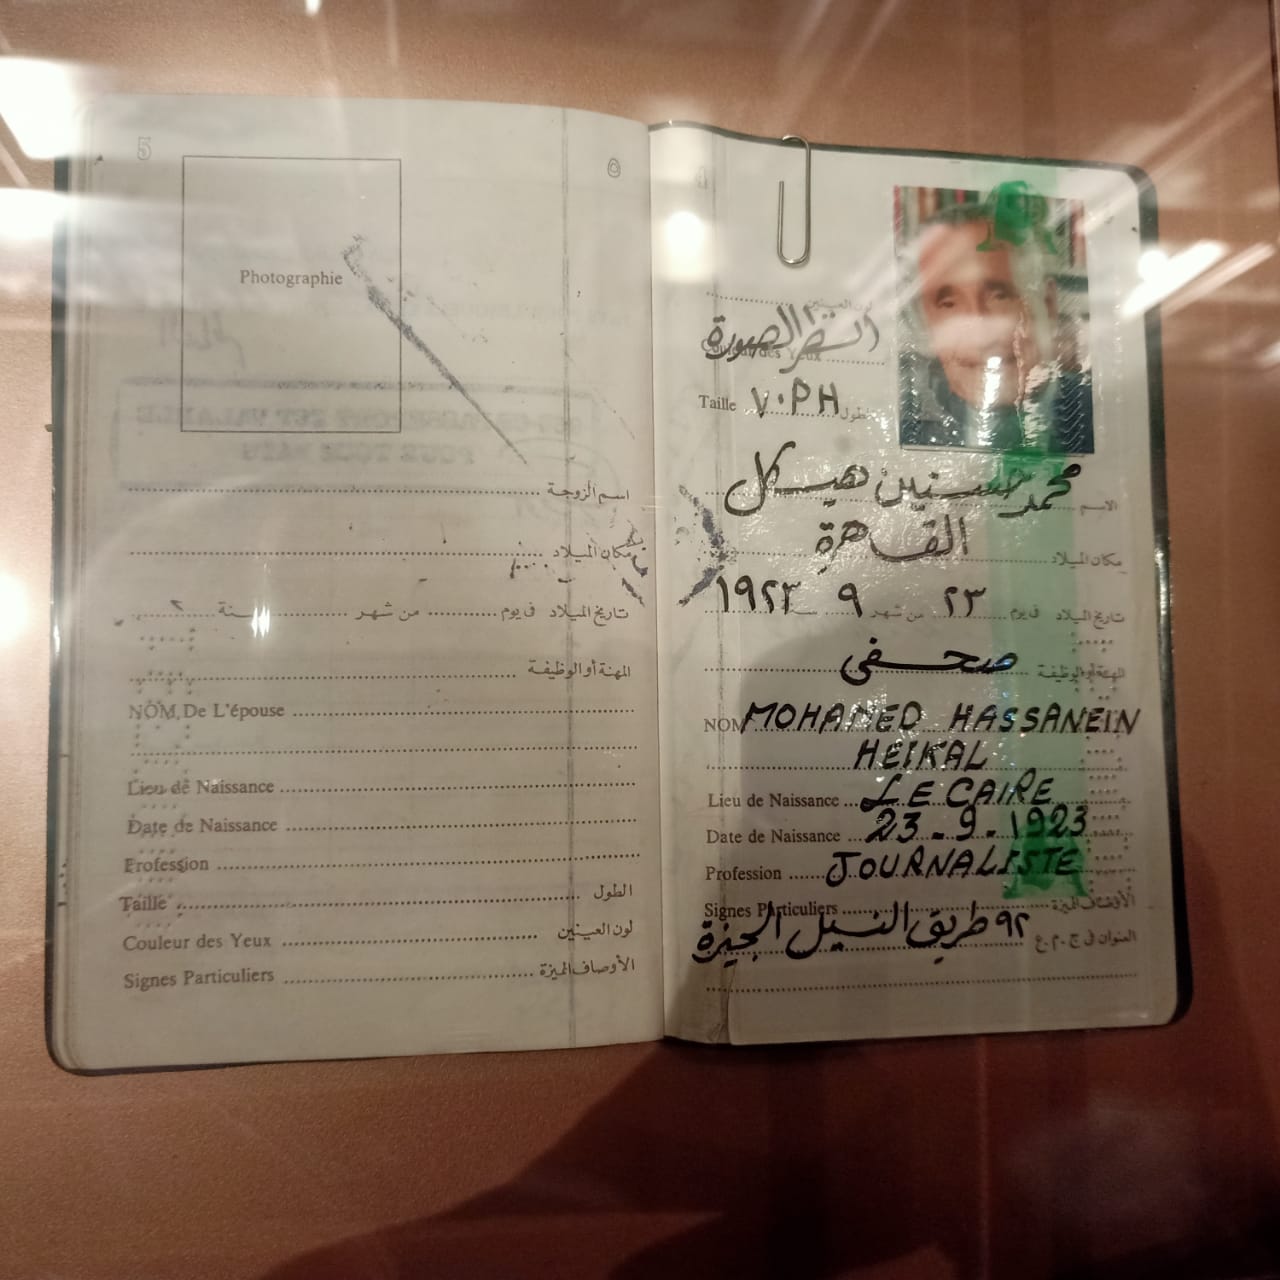 5
Photographie
اسم الزوجة
مكان الميلاد
تاريخ الميلاد فى يوم من شهر سنة
المهنة أو الوظيفة
NOM De L'épouse
Lieu de Naissance
Date de Naissance
Profession
الطول
Taille
لون العينين
Couleur des Yeux
الأوصاف المميزة
Signes Particuliers
4
لون العينين
انظر الصورة
Couleur des Yeux
Taille الطول
محمد حسنين هيكل
الاسم
القاهرة
مكان الميلاد
تاريخ الميلاد فى يوم ٢٣ من شهر ٩ ١٩٢٣
صحفى
المهنة أو الوظيفة
NOM MOHAMED HASSANEIN
HEIKAL
Lieu de Naissance LE CAIRE
Date de Naissance 23-9-1923
Profession JOURNALISTE
Signes Particuliers الأوصاف المميزة
العنوان فى ج.م.ع ٩٢ طريق النيل الجيزة